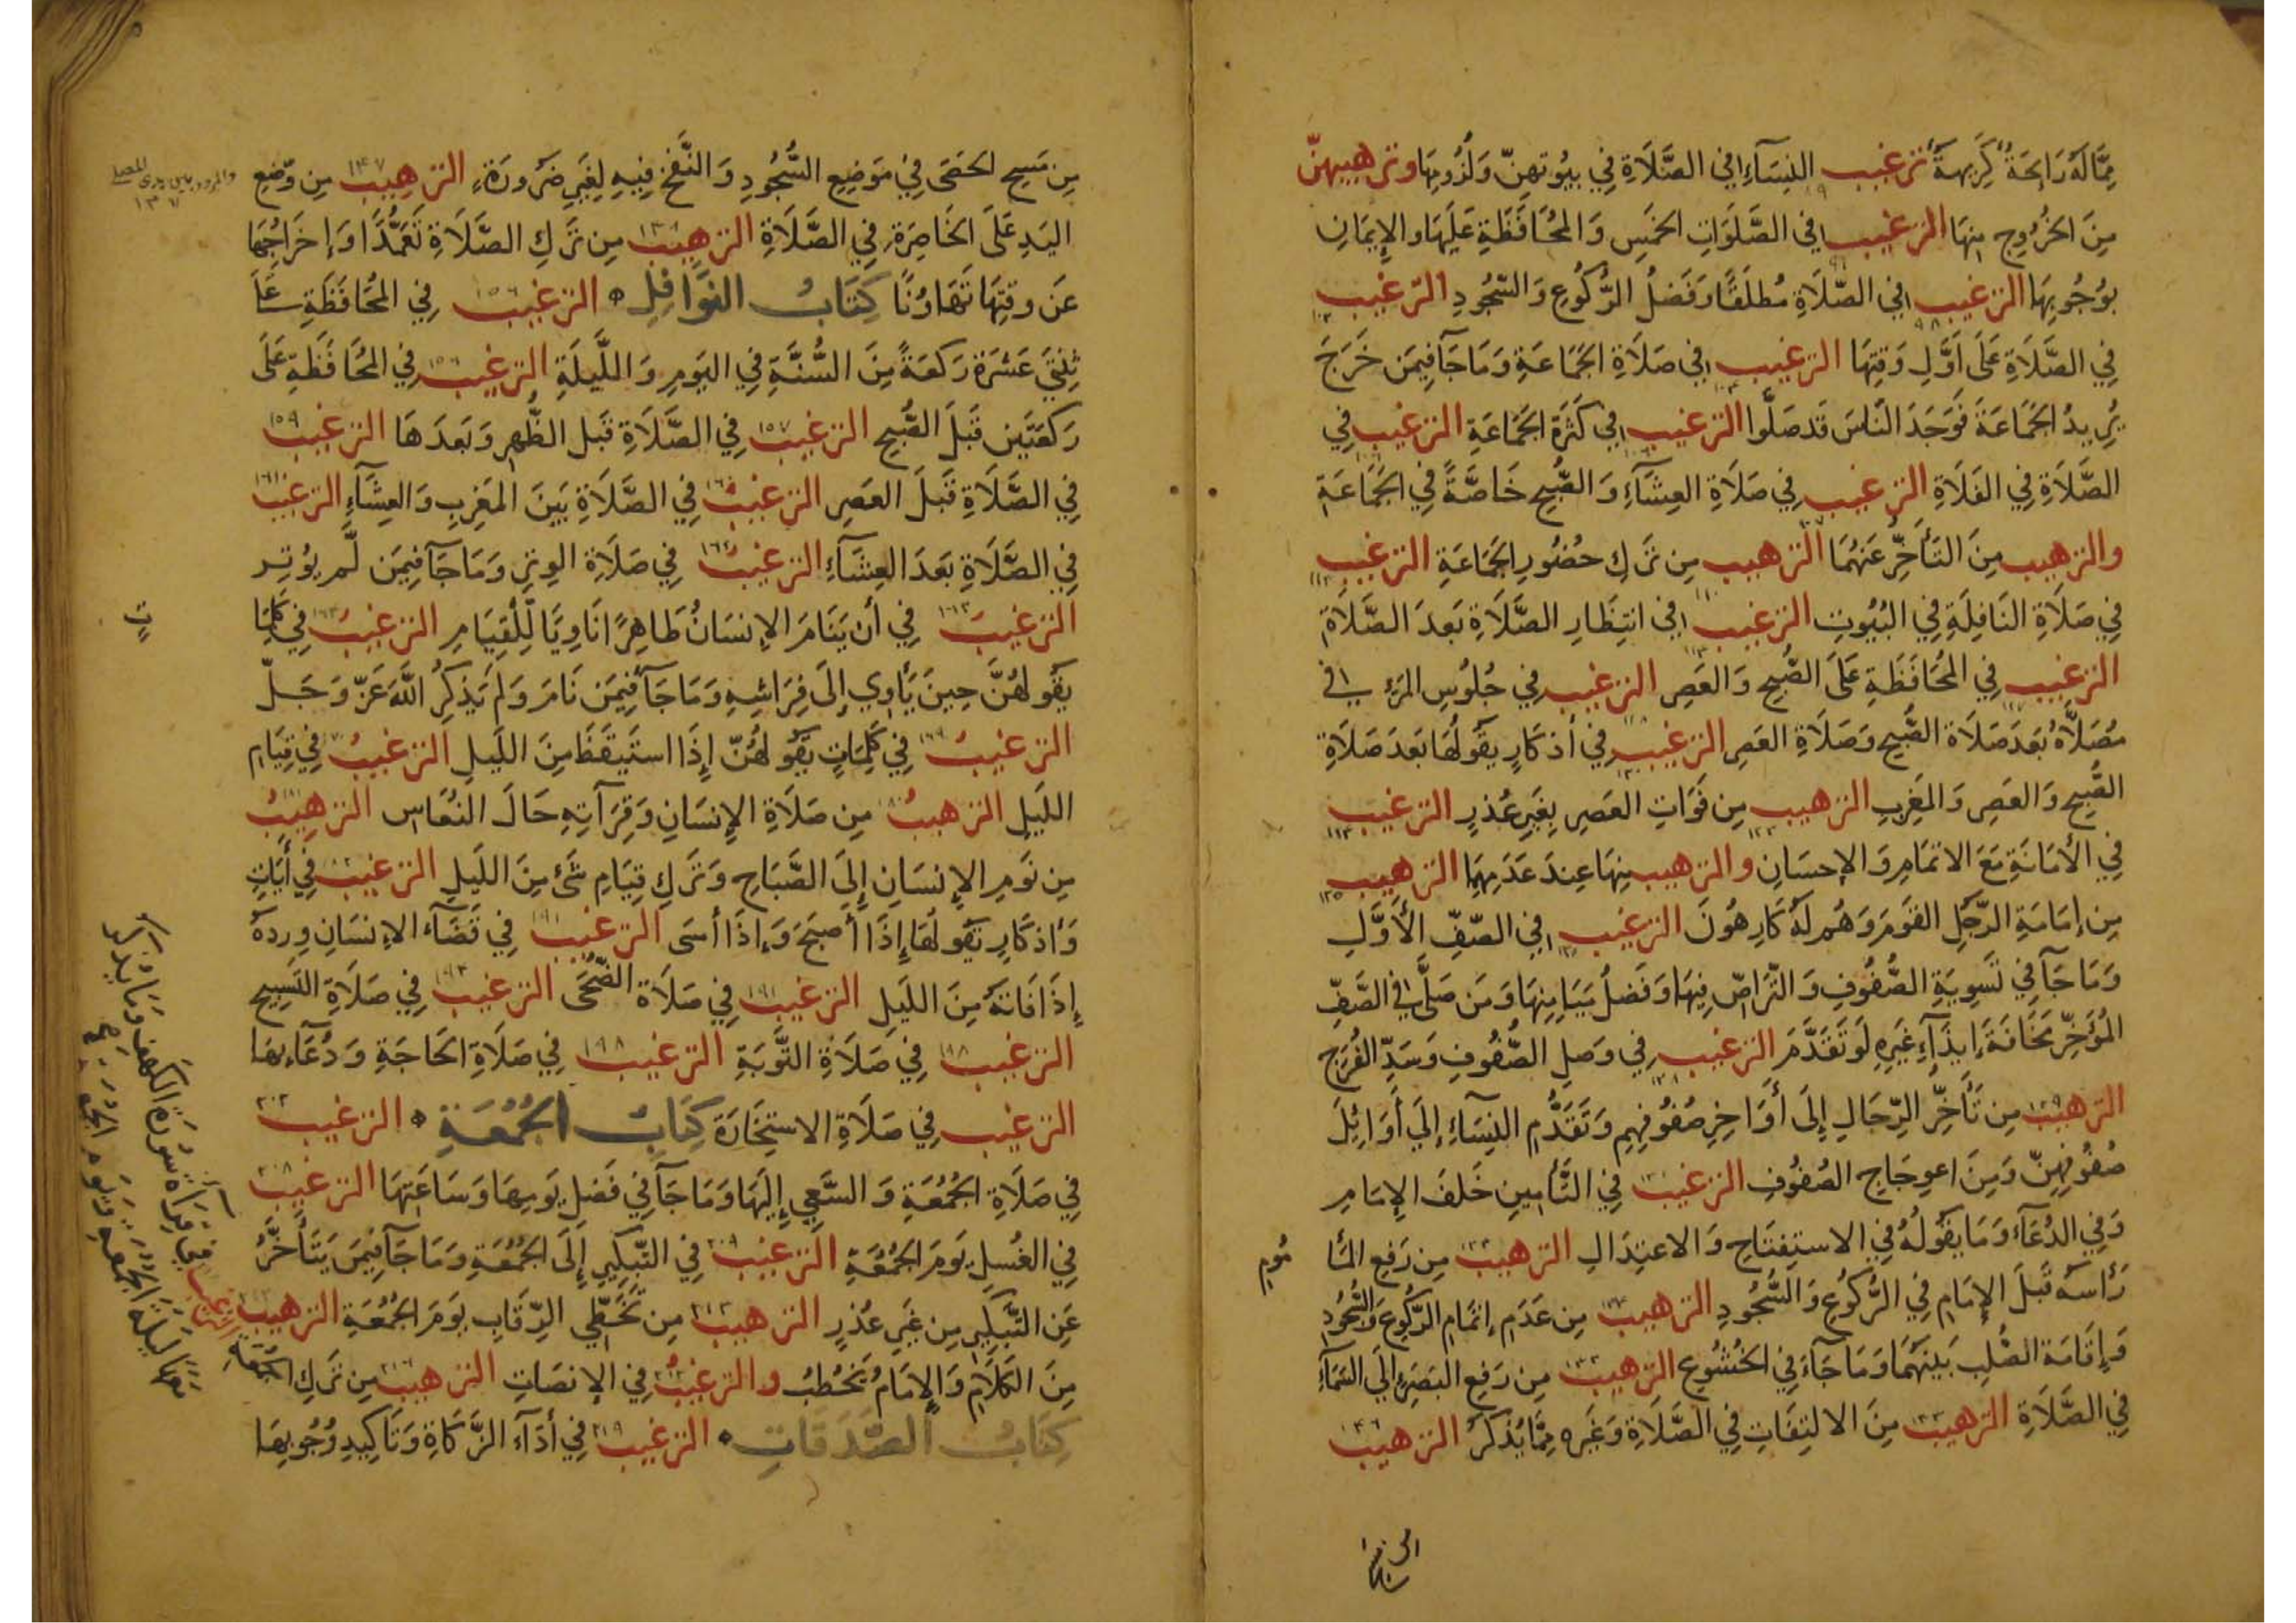 مِمَّا لَهُ رَائِحَةٌ كَرِيهَةٌ ترغيب النِّسَآءِ في الصَّلَاةِ فِي بيُوتهنّ وَلُزُومِهَا وترهيبهنّ
مِنَ الخُرُوجِ مِنهَا الترغيب في الصَّلَوَاتِ الخَمسِ وَالمُحَافَظَةِ عَلَيهَا والإيمَانِ
بوُجُوبِهَا الترغيب في الصَّلَاةِ مُطلَقًا وَفَضلُ الرُّكُوعِ وَالسّجُودِ الترغيب
فِي الصَّلَاةِ عَلَى أوَّلِ وَقتِهَا الترغيب في صَلَاةِ الجَمَاعَةِ وَمَا جَآ فِيمَن خَرَجَ
يُرِيدُ الجَمَاعَةَ فَوَجَدَ النَّاسَ قَد صَلَّوا الترغيب في كَثرَةِ الجَمَاعَةِ الترغيب في
الصَّلَاةِ فِي الفَلَاةِ الترغيب فِي صَلَاةِ العِشَآءِ وَالصُّبحِ خَاصَّةً فِي الجَمَاعَةِ
والترهيب مِنَ التَأَخُّرِ عَنهُمَا الترهيب مِن تَركِ حُضُورِ الجَمَاعَةِ الترغيب
فِي صَلَاةِ النَافِلَةِ فِي البُيُوتِ الترغيب في انتِظَارِ الصَّلَاةِ بَعدَ الصَّلَاةِ
الترغيب فِي المُحَافَظَةِ عَلَى الصُّبحِ وَالعَصرِ الترغيب فِي جُلُوسِ المَرءِ في
مُصَلَّاهُ بَعدَ صَلَاةِ الصُّبحِ وَصَلَاةِ العَصرِ الترغيب في أذكَارٍ يَقُولُهَا بَعدَ صَلَاةِ
الصُّبحِ وَالعَصرِ وَالمَغرِبِ الترهيب مِن فَوَاتِ العَصرِ بِغَيرِ عُذرٍ الترغيب
فِي الأمَانَةِ مَعَ الاتمَامِ وَالإحسَانِ والترهيب مِنهَا عِندَ عَدَمِهِمَا الترهيب
مِن إمَامَةِ الرَّجُلِ القَومَ وَهُم لَهُ كَارِهُونَ الترغيب في الصّفِّ الأوَّلِ
وَمَا جَآ فِي تَسوِيَةِ الصُّفُوفِ وَالتَّرَاصّ فِيهَا وَفَضلُ مَيَامِنِهَا وَمَن صَلَّى في الصَّفِّ
المُؤَخَّرِ مَخَافَةَ إيذَآءِ غَيرِهِ لَو تَقَدَّمَ الترغيب في وَصلِ الصُّفُوفِ وَسَدِّ الفُرَجِ
الترهيب مِن تَأَخُّرِ الرِّجَالِ إلَى أوَاخِرِ صُفُوفِهِم وَتَقَدُّمِ النِسَآءِ إلَى أوَائِلِ
صُفُوفِهِنّ وَمِنَ اعوِجَاجِ الصُفُوفِ الترغيب فِي التَّأمِينِ خَلفَ الإمَامِ
وَفِي الدُعَآءِ وَمَا يَقُولُهُ فِي الاستِفتَاحِ وَالاعتِدَالِ الترهيب مِن رَفعِ المَأ مُومِ
رَأسَهُ قَبلَ الإمَامِ فِي الرُّكُوعِ وَالسُّجُودِ الترهيب مِن عَدَمِ إتمَامِ الرُّكُوعِ وَالسُّجُودِ
وَإقَامَةِ الصُّلبِ بَينَهُمَا وَمَا جَآءَ فِي الخُشُوعِ الترهيب مِن رَفعِ البَصَرِ إلَى السَمَآءِ
فِي الصَّلَاةِ الترهيب مِنَ الالتِفَاتِ فِي الصَّلَاةِ وَغَيرِهِ مِمَّا يُذكَرُ الترهيب ١٤٦
مِن مَسحِ الحَصَى فِي مَوضِعِ السُّجُودِ وَالنَّفخِ فِيهِ لِغَيرِ ضَرُورَةٍ الترهيب ١٤٧ مِن وَضعِ
اليَدِ عَلَى الخَاصِرَةِ فِي الصَّلَاةِ الترهيب مِن تَركِ الصَّلَاةِ تَعَمُّدًا وَإخرَاجِهَا
عَن وقتِهَا تَهَاوُنًا كِتَابُ النَوَافِلِ الترغيب ١٥٦ فِي المُحَافَظَةِ عَلَى
ثِنتَي عَشرَةَ رَكعَةً مِنَ السُّنَّةِ فِي اليَومِ وَاللَّيلَةِ الترغيب ١٥٦ فِي المُحَافَظَةِ عَلَى
رَكعَتَينِ قَبلَ الصُّبحِ الترغيب ١٥٧ فِي الصَّلَاةِ قَبلَ الظُّهرِ وَبَعدَهَا الترغيب ١٥٩
فِي الصَّلَاةِ قَبلَ العَصرِ الترغيب ١٦٠ فِي الصَّلَاةِ بَينَ المَغرِبِ وَالعِشَآءِ الترغيب ١٦١
فِي الصَّلَاةِ بَعدَ العِشَآءِ الترغيب ١٦٢ فِي صَلَاةِ الوِترِ وَمَا جَآ فِيمَن لَّم يُوتِر
الترغيب ١٦٣ فِي أن يَنَامَ الإنسَانُ طَاهِرًا نَاوِيًا لِّلقِيَامِ الترغيب ١٦٣ فِي كَلِمَا ت
يَقُولهُنَّ حِينَ يَأوِي إلَى فِرَاشِهِ وَمَا جَآ فِيمَن نَامَ وَلَم يَذكُرِ اللَّهَ عَزّ وَجَلّ
الترغيب ١٦٩ فِي كَلِمَاتٍ يَقُولهُنّ إذَا استَيقَظَ مِنَ اللَيلِ الترغيب فِي قِيَامِ
اللَيلِ الترهيب مِن صَلَاةِ الإنسَانِ وَقِرَآتِهِ حَالَ النُعَاس الترهيب
مِن نَومِ الإنسَانِ إلَى الصَّبَاحِ وَتَركِ قِيَامِ شَئ مِنَ اللَيلِ الترغيب فِي أيَاتٍ
وَأذكَارٍ يَقُولهَا إذَا أصبَحَ وَإذَا أمسَى الترغيب ١٩١ فِي قَضَآءِ الإنسَانِ وِردَهُ
إذَا فَاتَهُ مِنَ اللَيلِ الترغيب ١٩١ فِي صَلَاةِ الضُّحَى الترغيب ١٩٤ فِي صَلَاةِ التَسبِيحِ
الترغيب ١٩٨ فِي صَلَاةِ التَّوبَةِ الترغيب ١٩٨ فِي صَلَاةِ الحَاجَةِ وَدُعَآءِهَا
الترغيب فِي صَلَاةِ الاستِخَارَة كِتَابُ الجُمُعَةِ الترغيب ٢٠٢
فِي صَلَاةِ الجُمُعَةِ وَالسَّعيِ إلَيهَا وَمَا جَآ فِي فَضلِ يَومِهَا وَسَاعَتِهَا الترغيب ٢٠٨
فِي الغُسلِ يَومَ الجُمُعَةِ الترغيب ٢٠٩ فِي التَّبكِيرِ إلَى الجُمُعَةِ وَمَا جَآ فِيمَن يَتَأَخَّرُ
عَنِ التَّبكِيرِ مِن غَيرِ عُذرٍ الترهيب ٢١٢ مِن تَخَطِّي الرِّقَابِ يَومَ الجُمُعَةِ الترهيب
مِنَ الكَلَامِ وَالإمَامُ يَخطُبُ والترغيب فِي الإنصَاتِ الترهيب مِن تَركِ الجُمُعَةِ
الترغيب فِي قِرَآءَةِ سُورَةِ الكَهفِ وَمَا يُذكَرُ
مَعَهَا لَيلَةَ الجُمُعَةِ وَيَومَ الجُمُعَةِ
كِتَابُ الصَّدَقَاتِ الترغيب ٢١٩ فِي أدَآءِ الزَّكَاةِ وَتَأكِيدِ وُجُوبِهَا